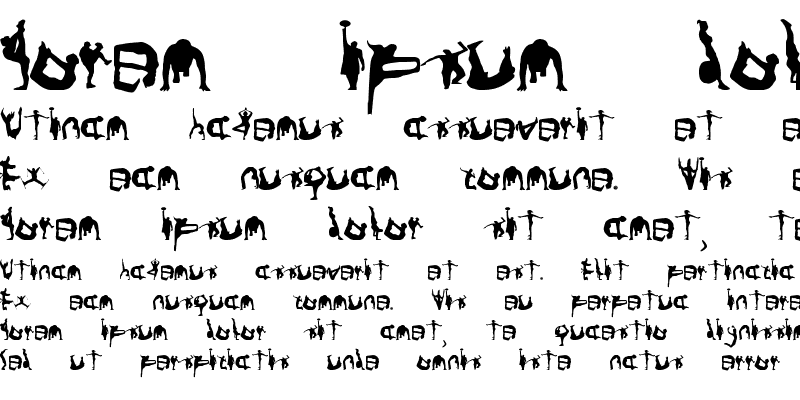 Lorem Ipsum dol
Utinam habemus assueverit et e
Ex eam nusquam commune. Vis e
Lorem ipsum dolor sit amet, te
Utinam habemus assueverit et est. Elit pertinacia
Ex eam nusquam commune. Vis eu perpetua intere
Lorem ipsum dolor sit amet, te quaestio dignissim
Sed ut perspiciatis unde omnis iste natus error